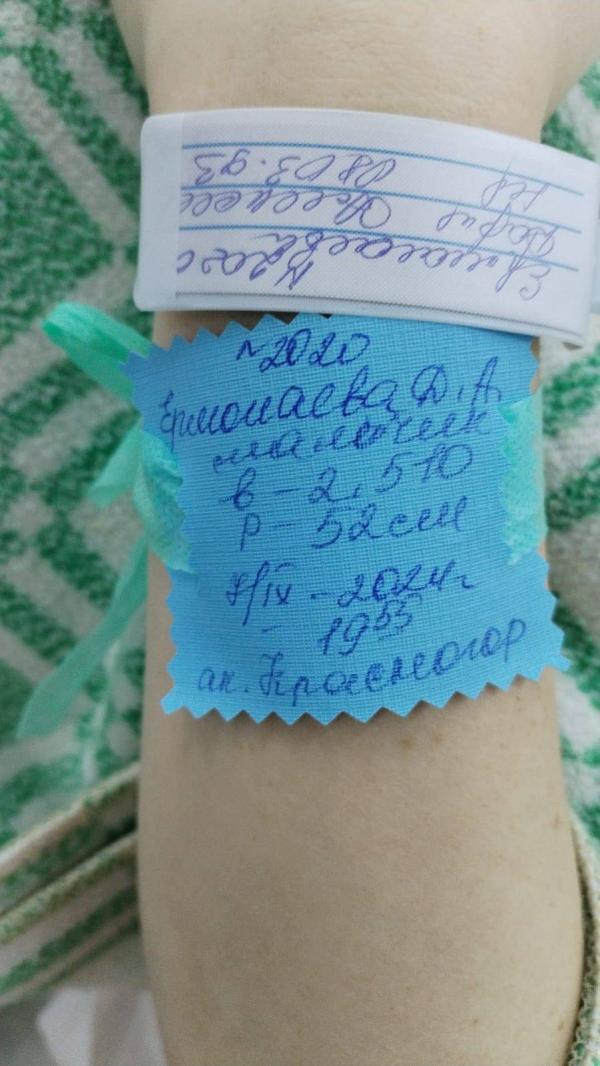 Ермолаева
Дарья Алексеев
08.03.93
~2020
Ермолаева Д.А.
мальчик
в - 2,570
р - 52 см
7/IX - 2024г
- 19 55
ак. Красногор